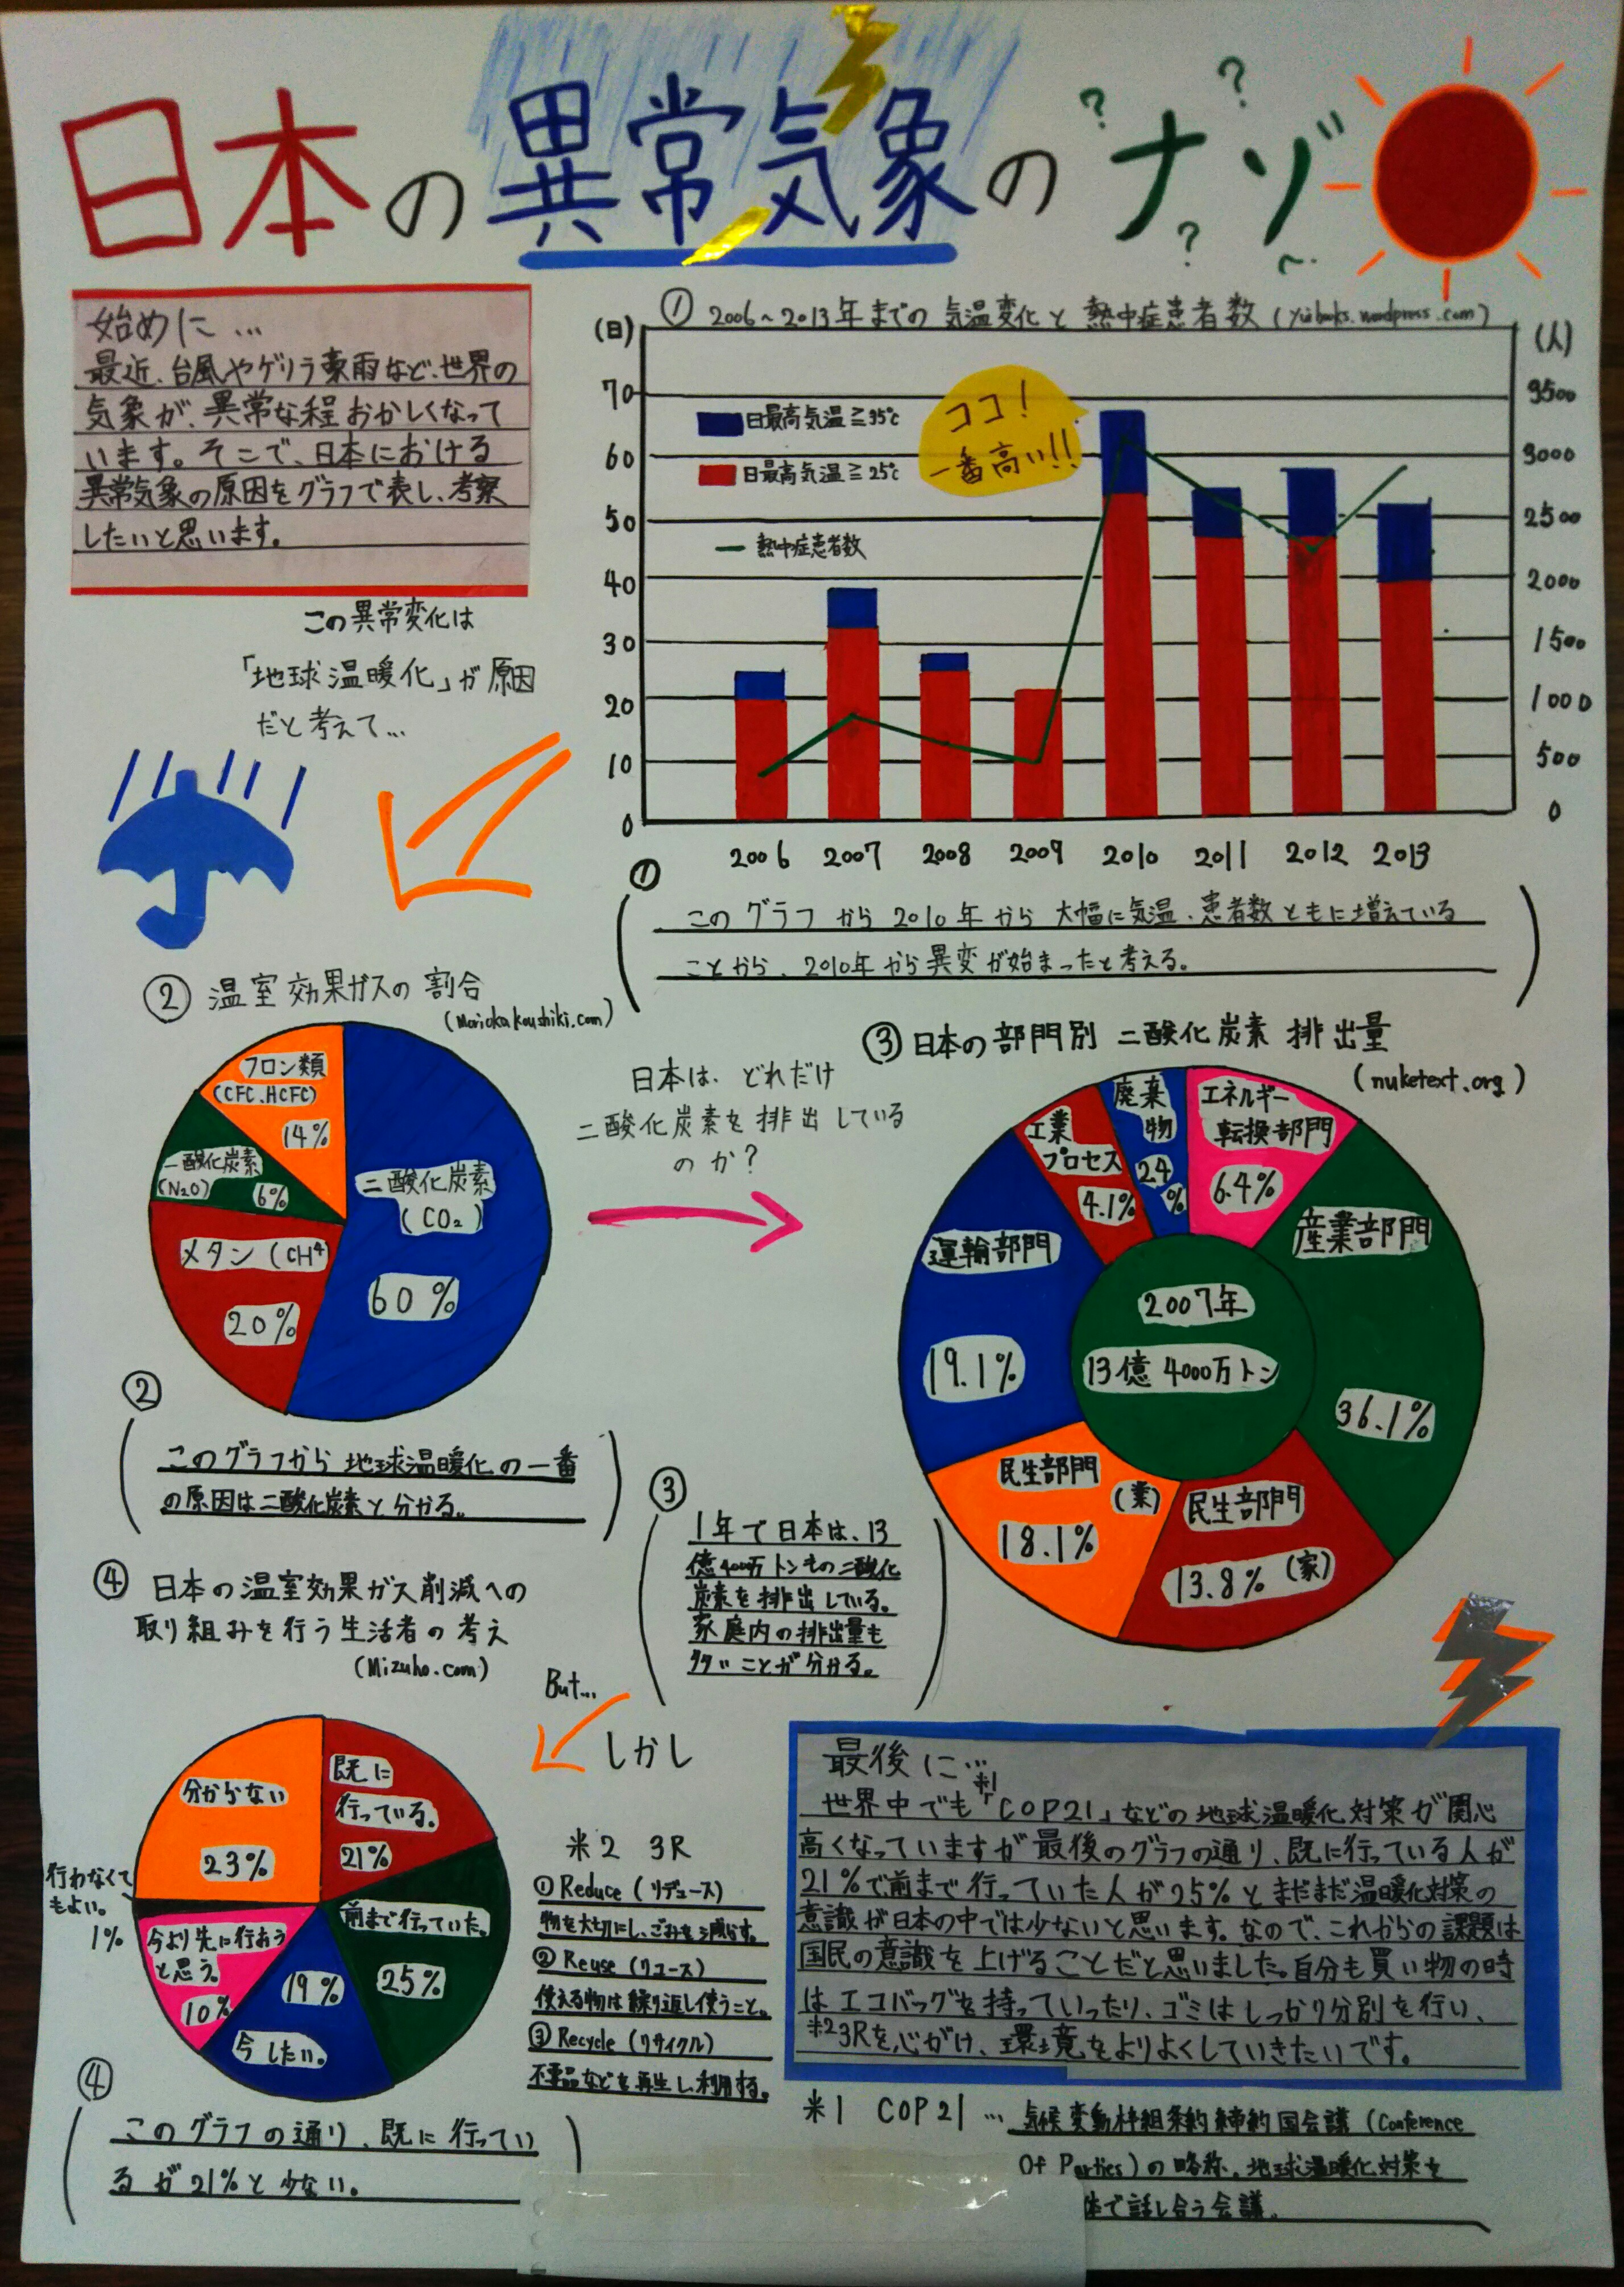 日本の異常気象のナゾ
? ? ?
始めに…
最近、台風やゲリラ豪雨など、世界の
気象が、異常な程おかしくなって
います。そこで、日本における
異常気象の原因をグラフで表し、考察
したいと思います。
① 2006~2013年までの気温変化と熱中症患者数(
(日)
(人)
70
60
50
40
30
20
10
0
3500
3000
2500
2000
1500
1000
500
0
日最高気温≧35℃
日最高気温≧25℃
熱中症患者数
ココ!
一番高い!!
2006 2007 2008 2009 2010 2011 2012 2013
①
このグラフから2010年から大幅に気温、患者数ともに増えている
ことから、2010年から異変が始まったと考える。
この異常変化は
「地球温暖化」が原因
だと考えて…
② 温室効果ガスの割合
(Moriokakoushiki.com)
フロン類
(CFC、HCFC)
14%
一酸化炭素
(N₂O)
6%
メタン(CH⁴
20%
二酸化炭素
(CO₂)
60%
②
このグラフから地球温暖化の一番
の原因は二酸化炭素と分かる。
日本は、どれだけ
二酸化炭素を排出している
のか?
③ 日本の部門別 二酸化炭素 排出量
(nuketext.org)
工業
プロセス
4.1%
廃棄
物
2.4
%
エネルギー
転換部門
6.4%
産業部門
36.1%
運輸部門
19.1%
2007年
13億4000万トン
民生部門
(業)
18.1%
民生部門
13.8%(家)
③
1年で日本は、13
億4000万トンもの二酸化
炭素を排出している。
家庭内の排出量も
多いことが分かる。
④ 日本の温室効果ガス削減への
取り組みを行う生活者の考え
(Mizuho.com)
But…
しかし
分からない
23%
既に
行っている。
21%
行わなくて
もよい。
1%
今より先に行おう
と思う。
10%
19%
今したい。
前まで行っていた。
25%
④
このグラフの通り、既に行ってい
るが21%と少ない。
米2 3R
①Reduce(リデュース)
物を大切にし、ごみを減らす。
②Reuse(リユース)
使える物は繰り返し使うこと。
③Recycle(リサイクル)
不要品などを再生し利用する。
最後に…
世界中でも※1「COP21」などの地球温暖化対策が関心
高くなっていますが最後のグラフの通り、既に行っている人が
21%で、前まで行っていた人が25%とまだまだ温暖化対策の
意識が日本の中では少ないと思います。なので、これからの課題は
国民の意識を上げることだと思いました。自分も買い物の時
はエコバッグを持っていったり、ゴミはしっかり分別を行い、
※23Rを心がけ、環境をよりよくしていきたいです。
米1 COP21…気候変動枠組条約締約国会議(Conference
Of Parties)の略称。地球温暖化対策を
体で話し合う会議。